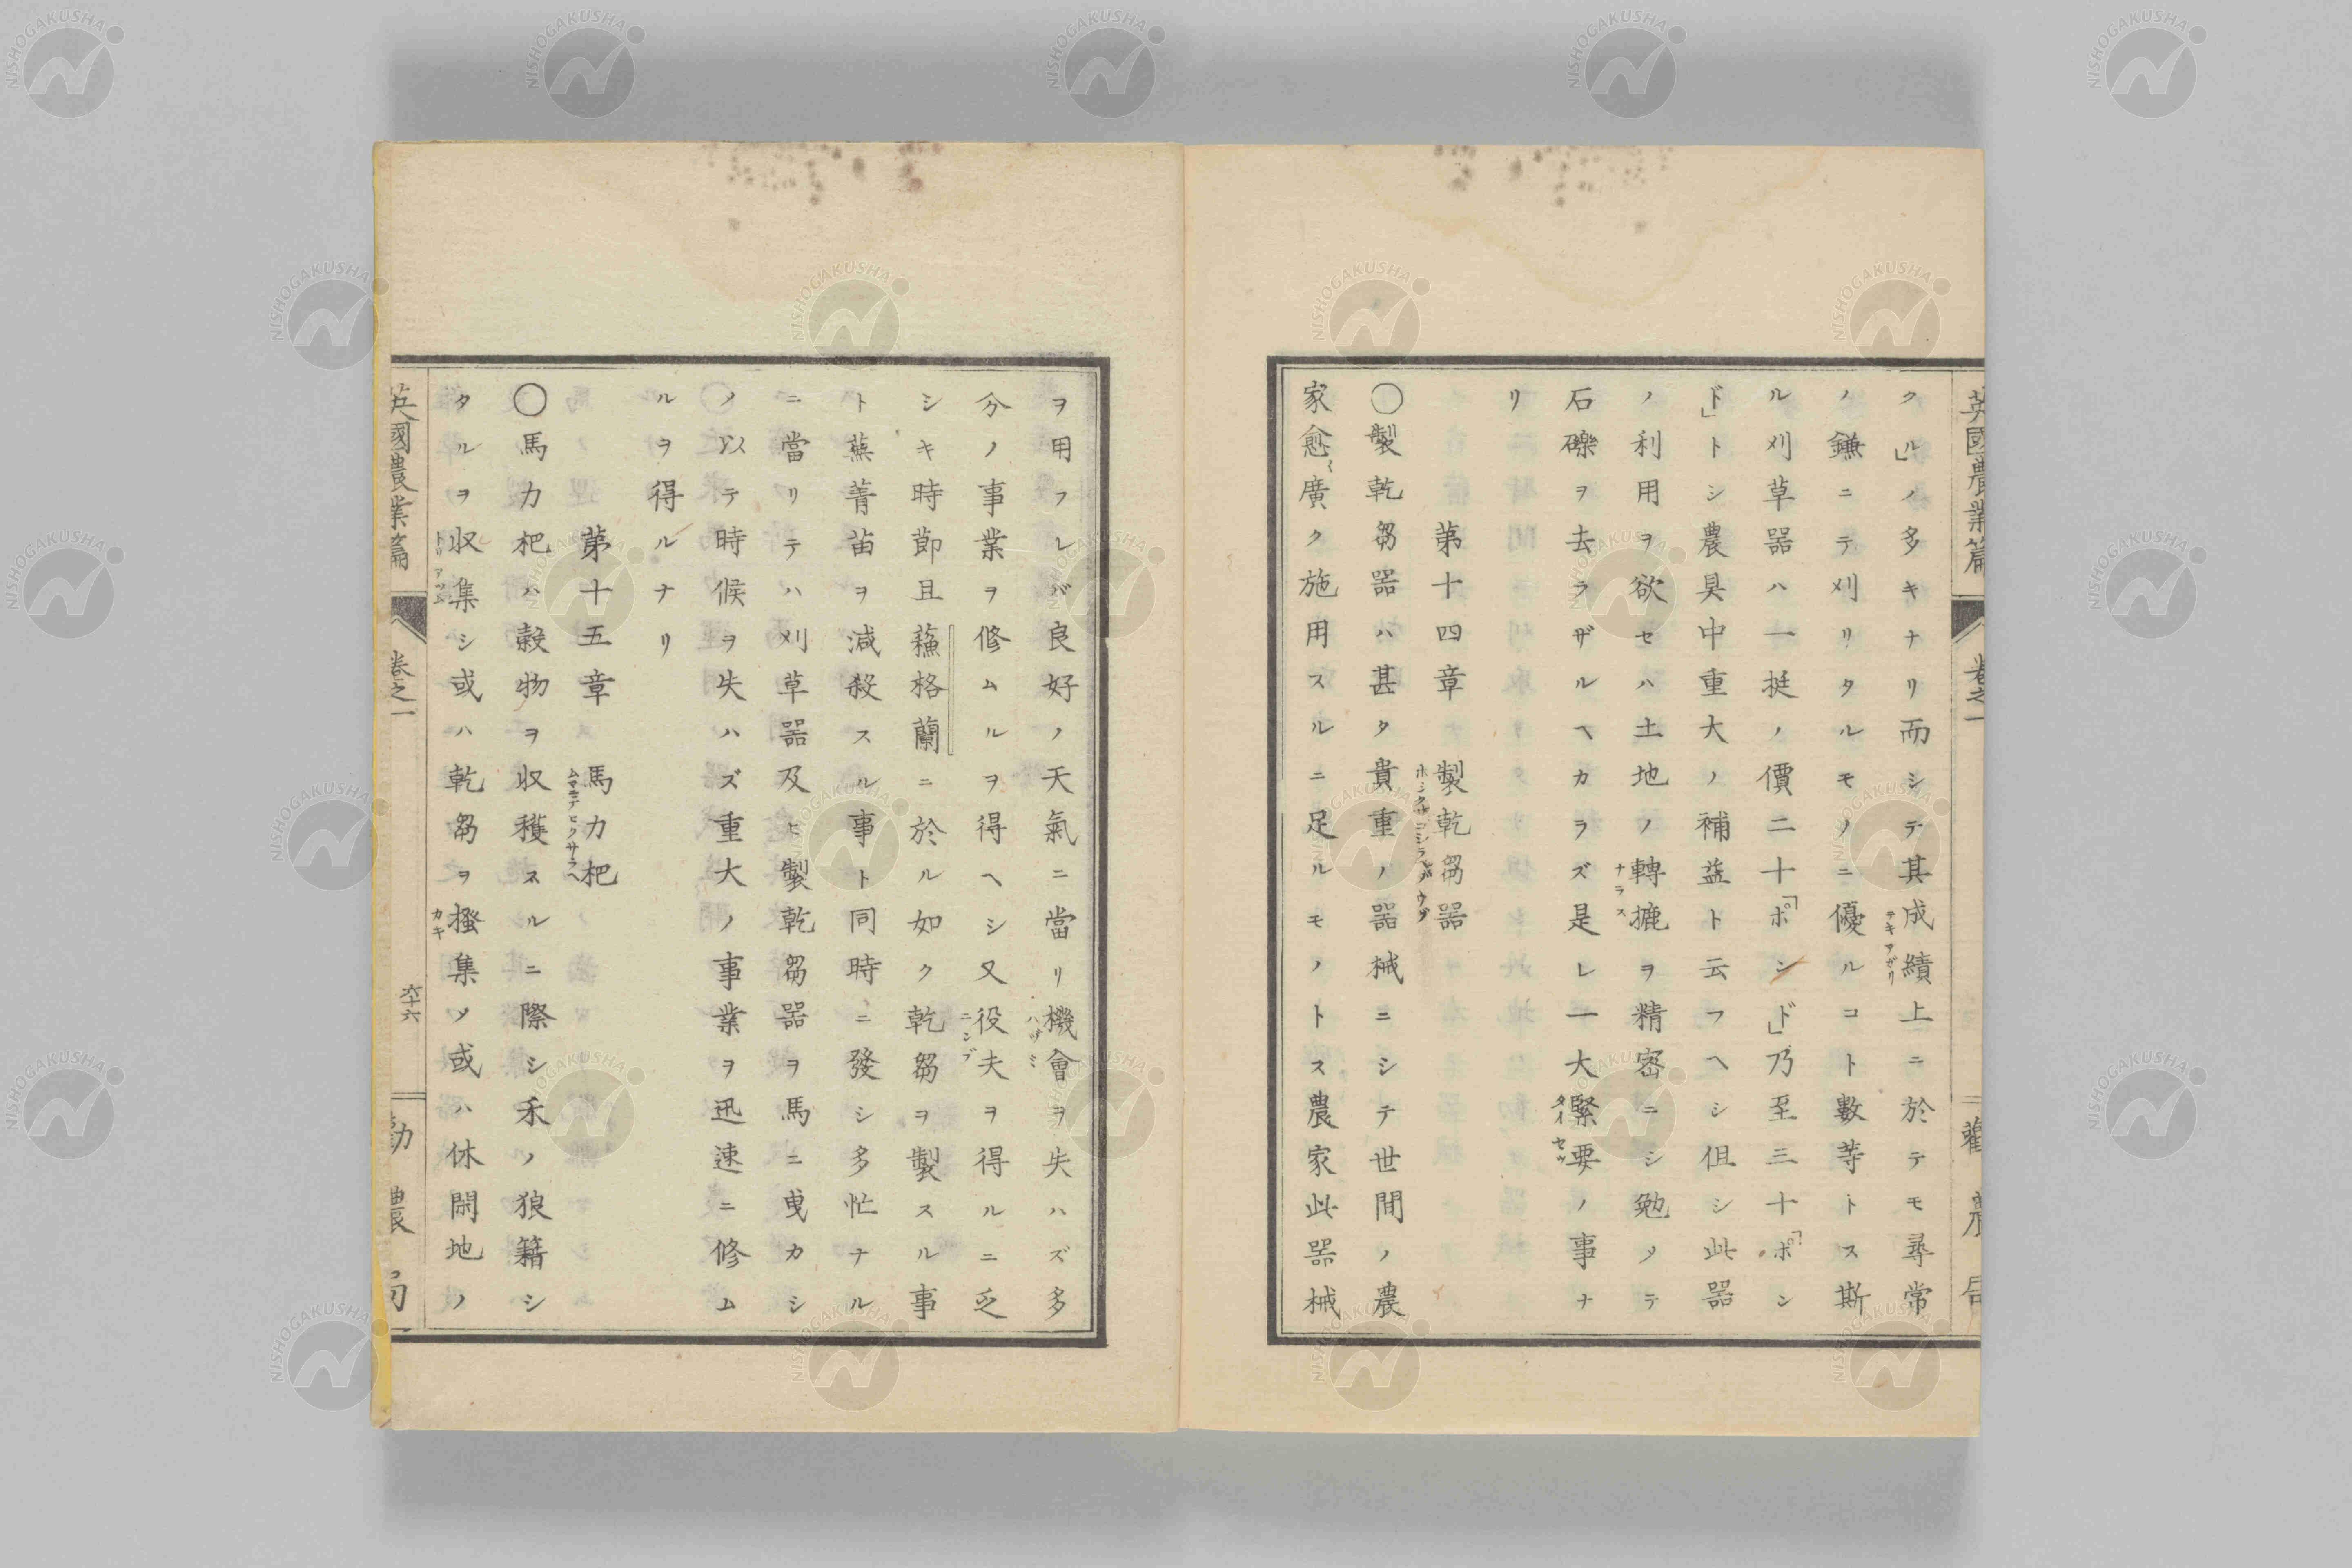 英國農業篇 卷之一 勸農局
クル」ノ多キナリ而シテ其成績上ニ於テモ尋常
テキアガリ
ノ鎌ニテ刈リタルモノニ優ルコト數等トス斯
ル刈草器ハ一挺ノ價二十「ポンド」乃至三十「ポン
ド」トシ農具中重大ノ補益ト云フヘシ但シ此器
ノ利用ヲ欲セハ土地ノ轉摝ヲ精密ニシ勉メテ
ナラス
石礫ヲ去ラザルヘカラズ是レ一大緊要ノ事ナ
タイセツ
リ
第十四章 製乾芻器
〇製乾芻器ハ甚タ貴重ノ器械ニシテ世間ノ農
家愈〻廣ク施用スルニ足ルモノトス農家此器械
ヲ用フレバ良好ノ天氣ニ當リ機會ヲ失ハズ多
ハヅミ
分ノ事業ヲ修ムルヲ得ヘシ又役夫ヲ得ルニ乏
ニンブ
シキ時節且蘓格蘭ニ於ル如ク乾芻ヲ製スル事
ト蕪菁苗ヲ減殺スル事ト同時ニ發シ多忙ナル
ニ當リテハ刈草器及ヒ製乾芻器ヲ馬ニ曳カシ
ノ以テ時候ヲ失ハズ重大ノ事業ヲ迅速ニ修ム
ルヲ得ルナリ
第十五章 馬力杷
ムマニテヒクサラヘ
〇馬力杷ハ穀物ヲ収穫スルニ際シ禾ノ狼籍シ
タルヲ収集シ或ハ乾芻ヲ搔集メ或ハ休閑地ノ
トリアツム
カキ
英國農業篇 卷之一 六十六 勸農局
NISHOGAKUSHA